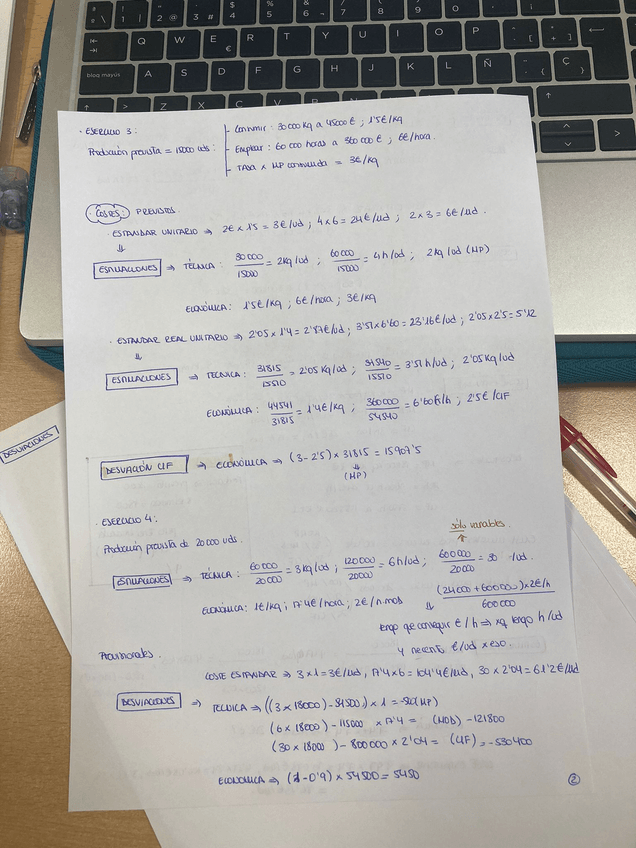 Q W E R T Y U I O P
€
bloq mayús A S D F G H J K L Ñ Ç
Z X C V B N M
DESVIACIONES
· EJERCICIO 3:
Producción prevista = 15000 uds:
- Consumir: 30000 Kg a 45000 € ; 1'5€/Kg
- Emplear: 60000 horas a 360000 € ; 6€/hora.
- TASA x MP consumida = 3€/Kg
COSTES: PREVISTOS
· ESTANDAR UNITARIO ⇒ 2€ x 1'5 = 3€/ud ; 4 x 6 = 24€/ud ; 2 x 3 = 6€/ud.
⇓
ESTIMACIONES ⇒ TÉCNICA: 30000/15000 = 2Kg/ud ; 60000/15000 = 4h/ud ; 2Kg/ud (MP)
ECONÓMICA: 1'5€/Kg ; 6€/hora ; 3€/Kg
· ESTANDAR REAL UNITARIO ⇒ 2'05 x 1'4 = 2'87€/ud ; 3'51 x 6'60 = 23'16€/ud ; 2'05 x 2'5 = 5'12
⇓
ESTIMACIONES ⇒ TÉCNICA: 31815/15510 = 2'05 Kg/ud ; 54540/15510 = 3'51 h/ud ; 2'05 Kg/ud
ECONÓMICA: 44541/31815 = 1'4€/Kg ; 360000/54540 = 6'60€/h ; 2'5€/CIF
DESVIACIÓN CIF ⇒ ECONÓMICA ⇒ (3 - 2'5) x 31815 = 15907'5
⇓
(MP)
· EJERCICIO 4:
Producción prevista de 20000 uds.
sólo variables.
↑
ESTIMACIONES ⇒ TÉCNICA: 60000/20000 = 3Kg/ud ; 120000/20000 = 6h/ud ; 600000/20000 = 30 /ud.
ECONÓMICA: 1€/Kg ; 17'4€/hora ; 2€/h.mob ⇓ (24000 + 600000) x 2€/h / 600000
tengo que conseguir €/h ⇒ xq tengo h/ud
y necesito €/ud x eso.
Provisionales.
COSTE ESTANDAR ⇒ 3 x 1 = 3€/ud, 17'4 x 6 = 104'4€/ud, 30 x 2'04 = 61'2€/ud
DESVIACIONES ⇒ TECNICA ⇒ ((3 x 18000) - 54500) x 1 = -500 (MP)
(6 x 18000) - 115000 x 17'4 = (MOD) - 121800
(30 x 18000) - 800000 x 2'04 = (CIF) = -530400
ECONOMICA ⇒ (1 - 0'9) x 54500 = 5450
2